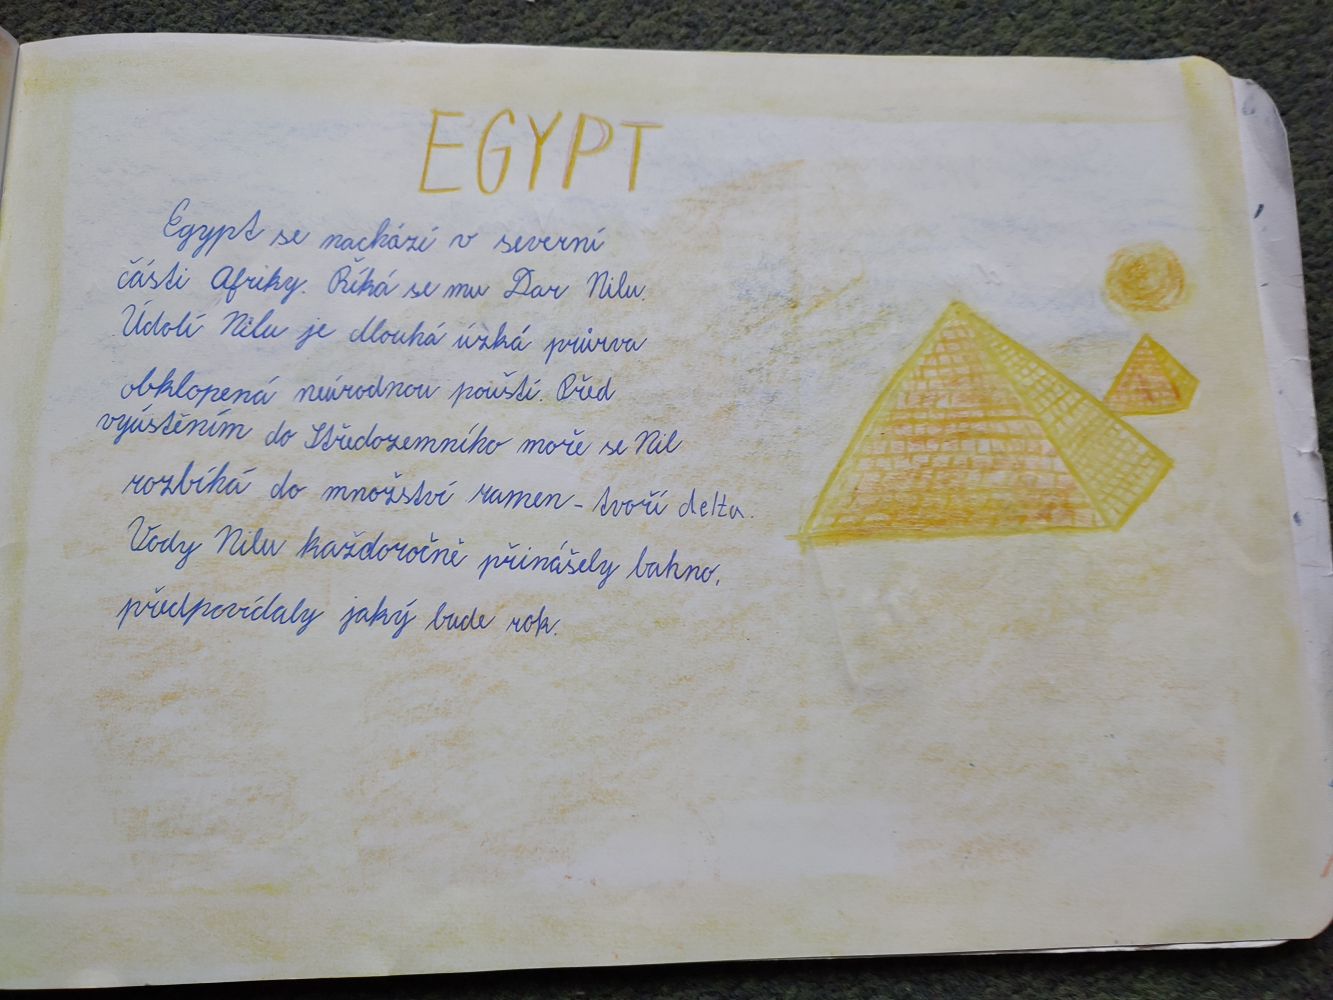 EGYPT
Egypt se nachází v severní
části Afriky. Říká se mu Dar Nilu.
Údolí Nilu je dlouhá úzká průrva
obklopená neúrodnou pouští. Před
vyústěním do Středozemního moře se Nil
rozbíhá do množství ramen - tvoří delta.
Vody Nilu každoročně přinášely bahno,
předpovídaly jaký bude rok.